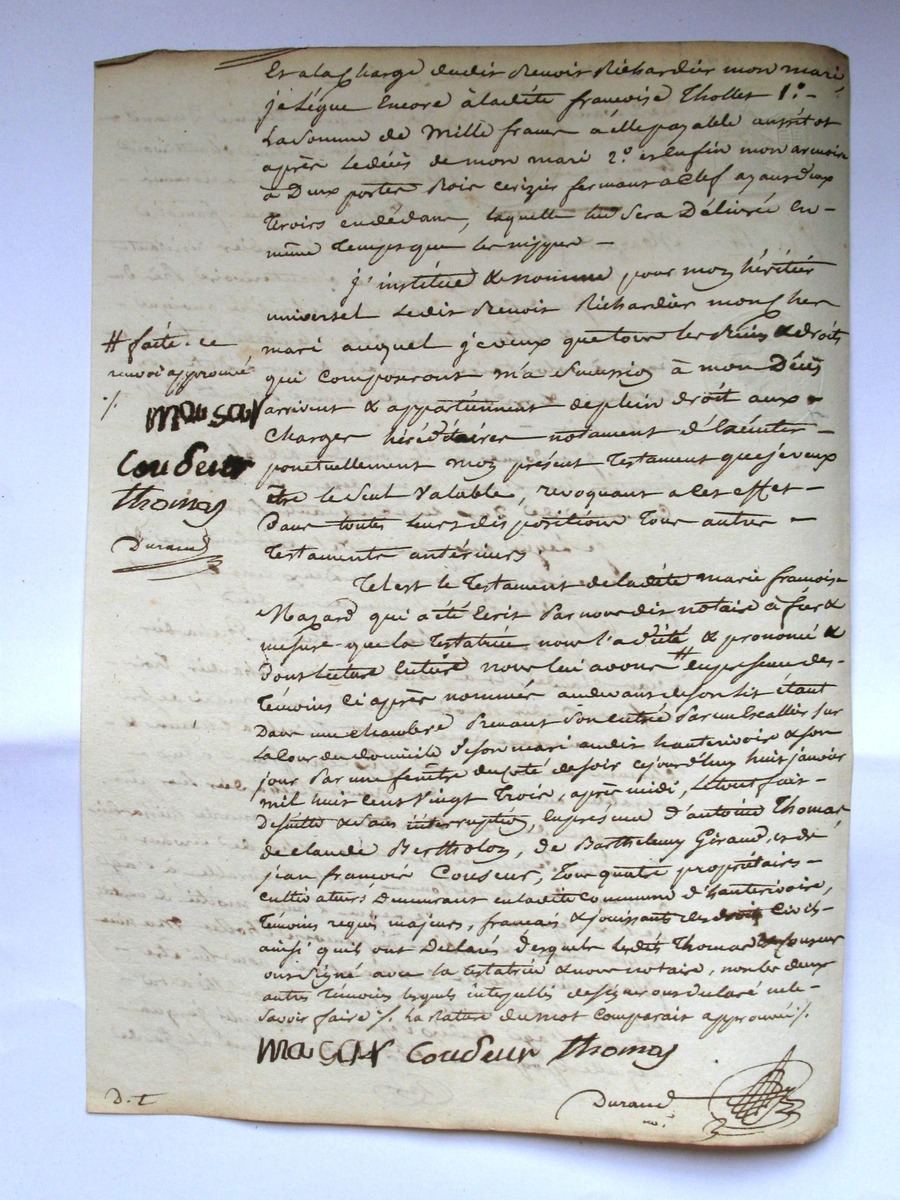 Et a la Charge dudit Benoit Richardier mon mari
je Lègue Encore à ladite françoise Thollet 1.° -
La Somme de Mille francs à élle payable aussitot
après le décès de mon mari 2.° et Enfin mon armoire
à Deux portes Bois cerizier fermant a Clef ayant deux
Tiroirs en dedans, laquelle lui Sera Délivrée En -
même Temps que les nippes -
J'institue & nomme pour mon héritier
universel Ledit Benoit Richardier mon cher
mari auquel je veux que tous les Biens & droits
qui composeront ma Succession à mon Décès
arrivent & appartiennent de plein droit aux -
Charges héréditaires notament d'éxécuter -
ponctuellement mon présent Testament que je veux
être le Seul Valable, révoquant a cet effet -
Dans toutes leurs dispositions Tous autres -
Testaments antérieurs
Tel est le Testament de ladite marie françoise
Mazard qui a été Ecrit Par nous dit notaire à fur &
mesure que la Testatrice nous l'a dicté & prononcé &
Dont lecture Entière nous lui avons # En présence des -
Témoins Ci après nommés au devant de son Lit étant
Dans une chambre Prenant Son entrée Par un Escallier Sur
La Cour du domicile de Son mari audit hauterivoire & son
jour Par une fenêtre du côté de soir cejourd'hui huit janvier
mil huit Cent Vingt Trois, après midi, Le tout fait -
De suitte & Sans interruption, En présence d'antoine Thomas,
de Claude Bertholon, de Barthelemy Giraud, et de
jean françois Couseur, Tous quatre propriétaires -
cultivateurs Demeurant en ladite Commune d'hauterivoire,
Témoins requis majeurs, francais & jouissant des droits Civils
ainsi qu'ils ont Déclaré Desquels Lesdits Thomas & Couseur
ont Signé avec la Testatrice & nous notaire, non les deux
autres Témoins lesquels interpellés de signer ont déclaré ne le
Savoir faire ./. La rature du mot comparait approuvée ./.
# faite. ce
renvoi approuvé
./.
Masar
Coudeur
Thomas
Durand
Masar Coudeur Thomas
Durand
n.re
D. T.